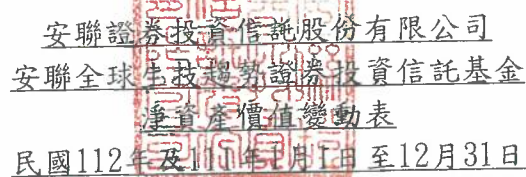 安聯證券投資信託股份有限公司
安聯全球生技趨勢證券投資信託基金
淨資產價值變動表
民國112年及111年1月1日至12月31日